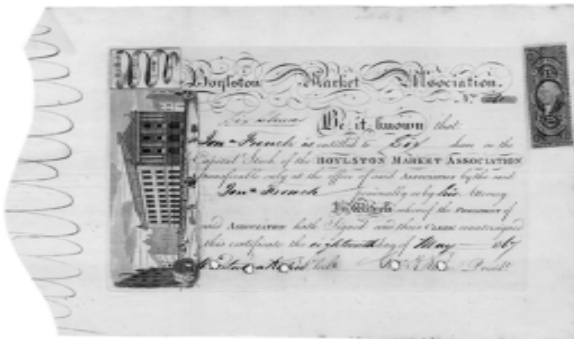 Boylston Market Association.
Be it known that
Jonᵃ French is entitled to Six share in the
Capital Stock of the BOYLSTON MARKET ASSOCIATION
transferable only at the office of said ASSOCIATION by the said
Jonᵃ French personally or by his Attorney
In Witness whereof the PRESIDENT of
said ASSOCIATION hath Signed and their CLERK countersigned
this certificate the eighteenth day of May 1867
Presdt